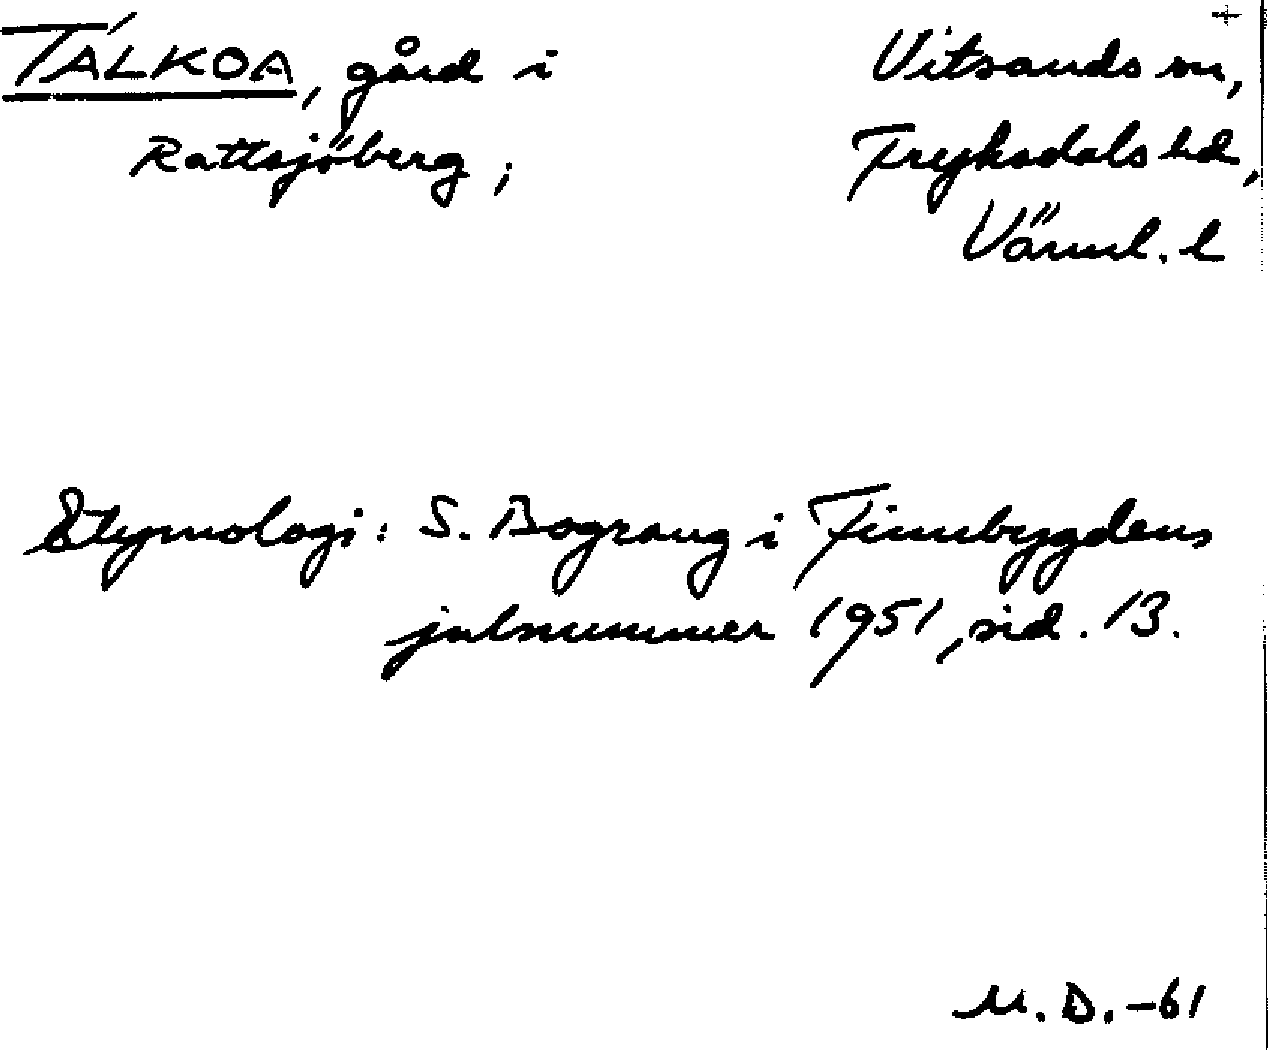 TÁLKOA, gård i
Rattsjöberg;
Vitsands sn,
Fryksdals hd,
Värml. l
Etymologi: S. Bograng i Finnbygdens
julnummer 1951, sid. 13.
M. D. -61